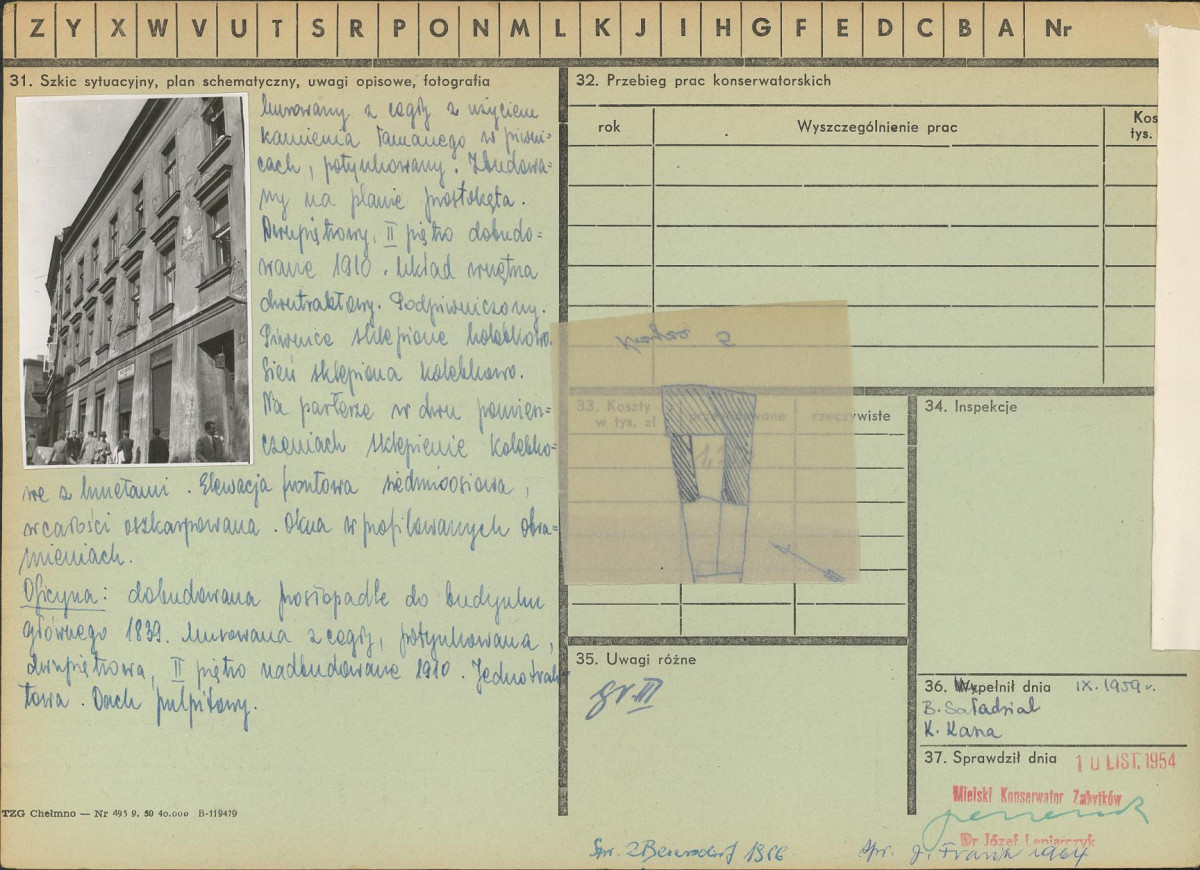 Z Y X W V U T S R P O N M L K J I H G F E D C B A Nr
31. Szkic sytuacyjny, plan schematyczny, uwagi opisowe, fotografia
Murowany z cegły z użyciem
kamienia łamanego w piwni=
cach, potynkowany. Zbudowa=
ny na planie prostokąta.
Dwupiętrowy, II piętro dobudo=
wane 1910. Układ wnętrza
dwutraktowy. Podpiwniczony.
Piwnice sklepione kolebkowo.
Sień sklepiona kolebkowo.
Na parterze w dwu pomiesz=
czeniach sklepienie kolebko=
we z lunetami. Elewacja frontowa siedmioosiowa,
w całości oszkarpowana. Okna w profilowanych obra=
mieniach.
Oficyna: dobudowana prostopadle do budynku
głównego 1839. Murowana z cegły, potynkowana,
dwupiętrowa, II piętro nadbudowane 1910. Jednotrak
towa. Dach pulpitowy.
TZG Chełmno — Nr 495 9. 50 40.000 B-119479
32. Przebieg prac konserwatorskich
rok
Wyszczególnienie prac
Kos
tys.
33. Koszty
w tys. zł
rzeczywiste
34. Inspekcje
35. Uwagi różne
gr. III
36. Wypełnił dnia IX. 1959 r.
K. Kasa
37. Sprawdził dnia 10 LIST. 1954
Miejski Konserwator Zabytków
Dr Józef Lepiarczyk
Spr. 1966
Spr. J. Frasik 1964